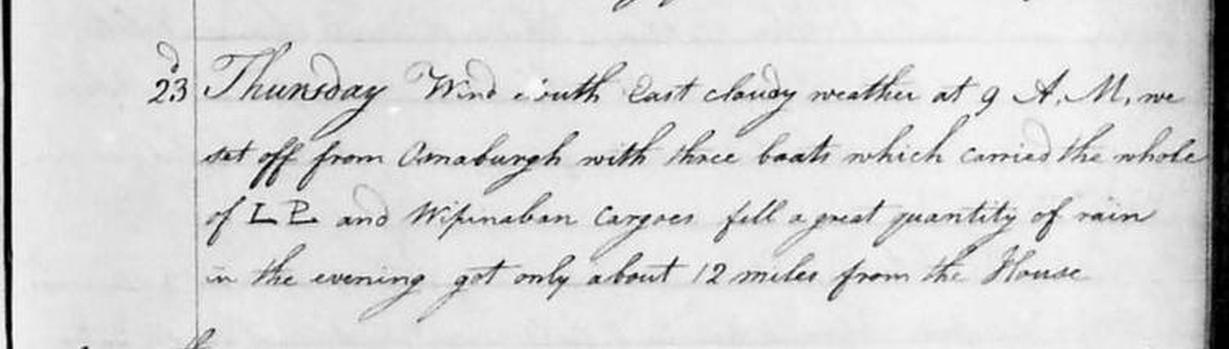 23d Thursday Wind South East cloudy weather at 9 A.M. we
set off from Osnaburgh with three boats which carried the whole
of L P and Wipinaban Cargoes fell a great quantity of rain
in the evening got only about 12 miles from the House